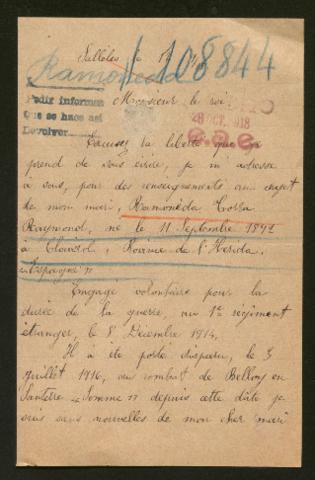 Salléles
108844
Ramoneda
Monsieur le roi
Pedir informes
Que se haga así
Devolver
28 OCT. 1918
Excusez la liberté que je
prend de vous écrire, je m'adresse
à vous, pour des renseignements au sujet
de mon mari, Ramonéda Torra
Raymond, né le 11 Septembre 1892
à Province de l'Herida,
en Espagne
Engagé volontaire pour la
durée de la guerre, au 1e régiment
étranger, le 8 Décembre 1914.
Il à été porté disparu, le 5
juillet 1916, au combat de Belloy en
Santerre "Somme" depuis cette dâte je
suis sans nouvelles de mon cher mari